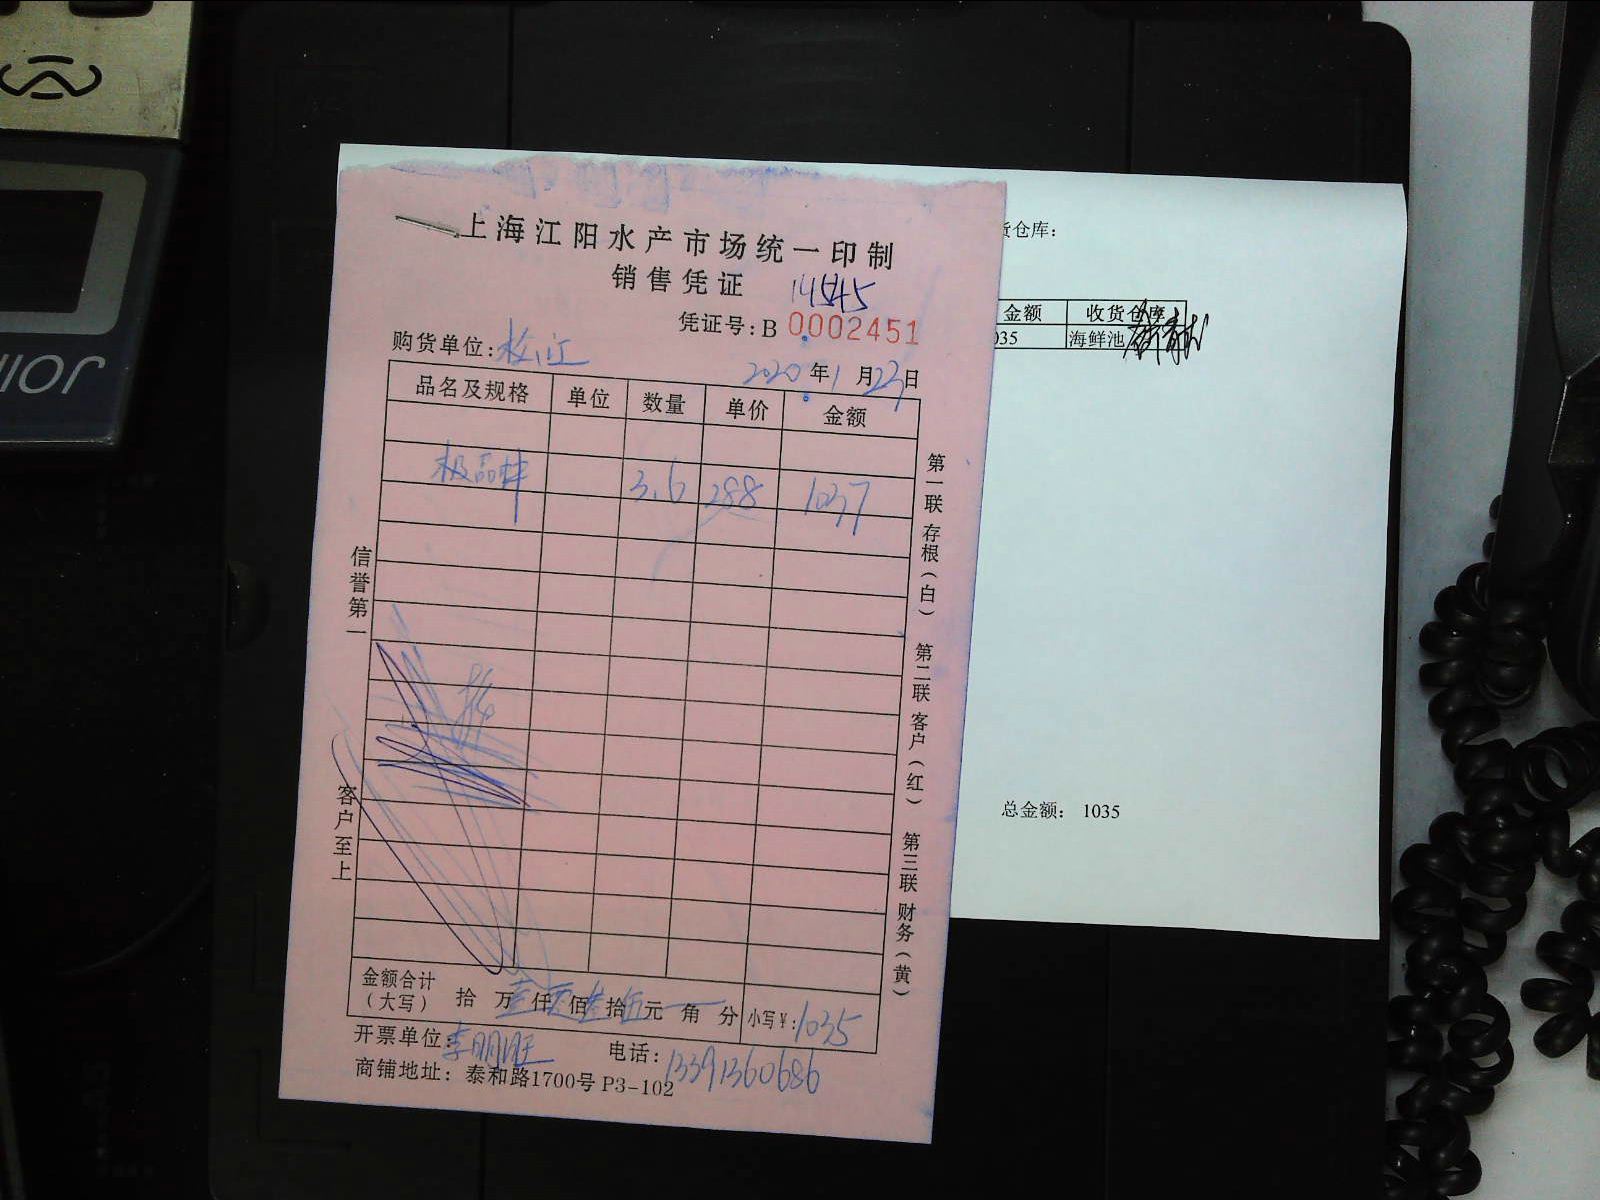 上海江阳水产市场统一印制
销售凭证
14545
凭证号:B 0002451
购货单位:
2020年1月23日
品名及规格 单位 数量 单价 金额
极品虾 3.6 288 1037
信誉第一
客户至上
第一联 存根(白) 第二联 客户(红) 第三联 财务(黄)
金额合计(大写) 拾 万壹仟零佰叁拾伍元一角 分 小写¥:1035
开票单位:李明旺 电话:13391360686
商铺地址: 泰和路1700号 P3-102
货仓库:
金额 收货仓库
035 海鲜池
总金额: 1035
NIOR